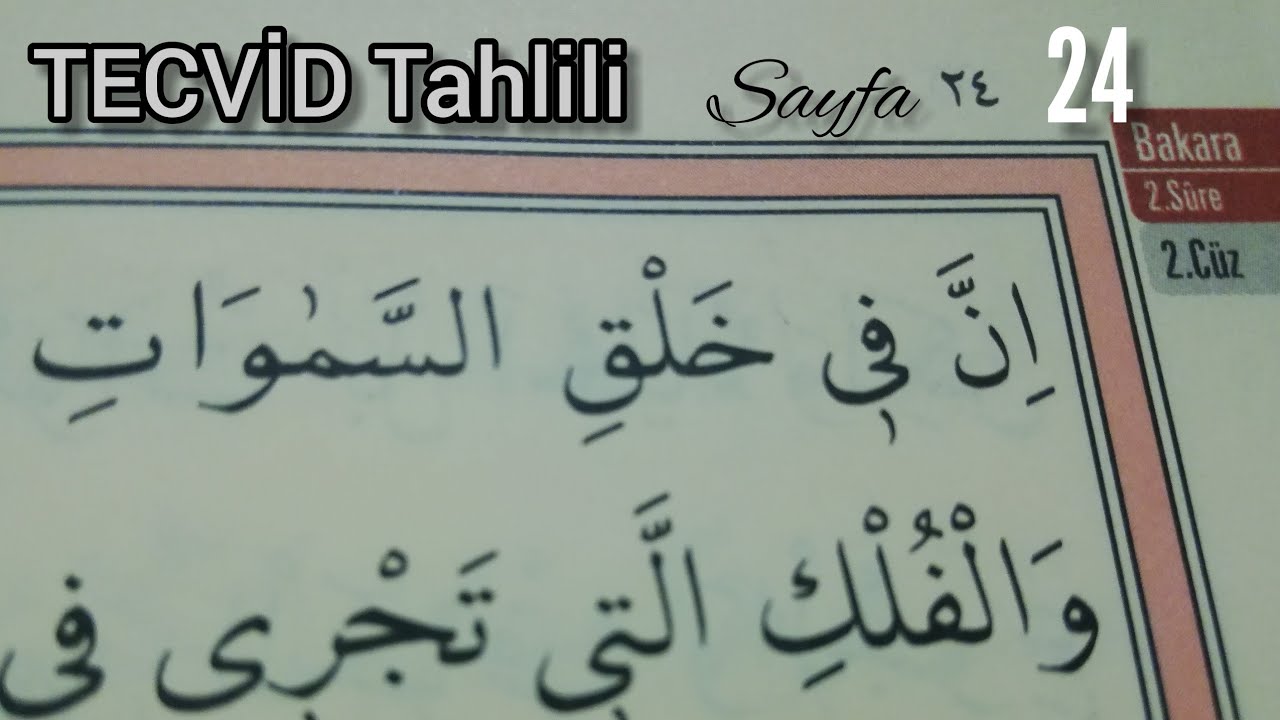 TECVİD Tahlili Sayfa ٢٤ 24
Bakara
2.Sûre
2.Cüz
اِنَّ فٖي خَلْقِ السَّمٰوَاتِ
وَالْفُلْكِ الَّتٖي تَجْرٖي فٖي